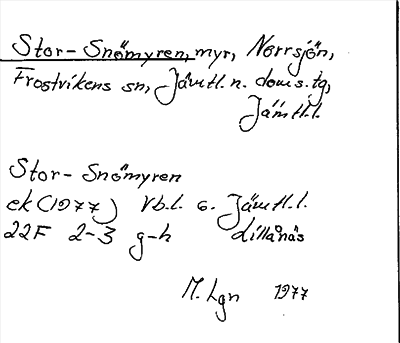 Stor-Snömyren, myr, Norrsjön,
Frostvikens sn, Jämtl. n. doms.tg,
Jämtl.l.
Stor-Snömyren
ek (1977) Vb.l. o. Jämtl.l.
22F 2-3 g-h Lillånäs
M. Lgn 1977